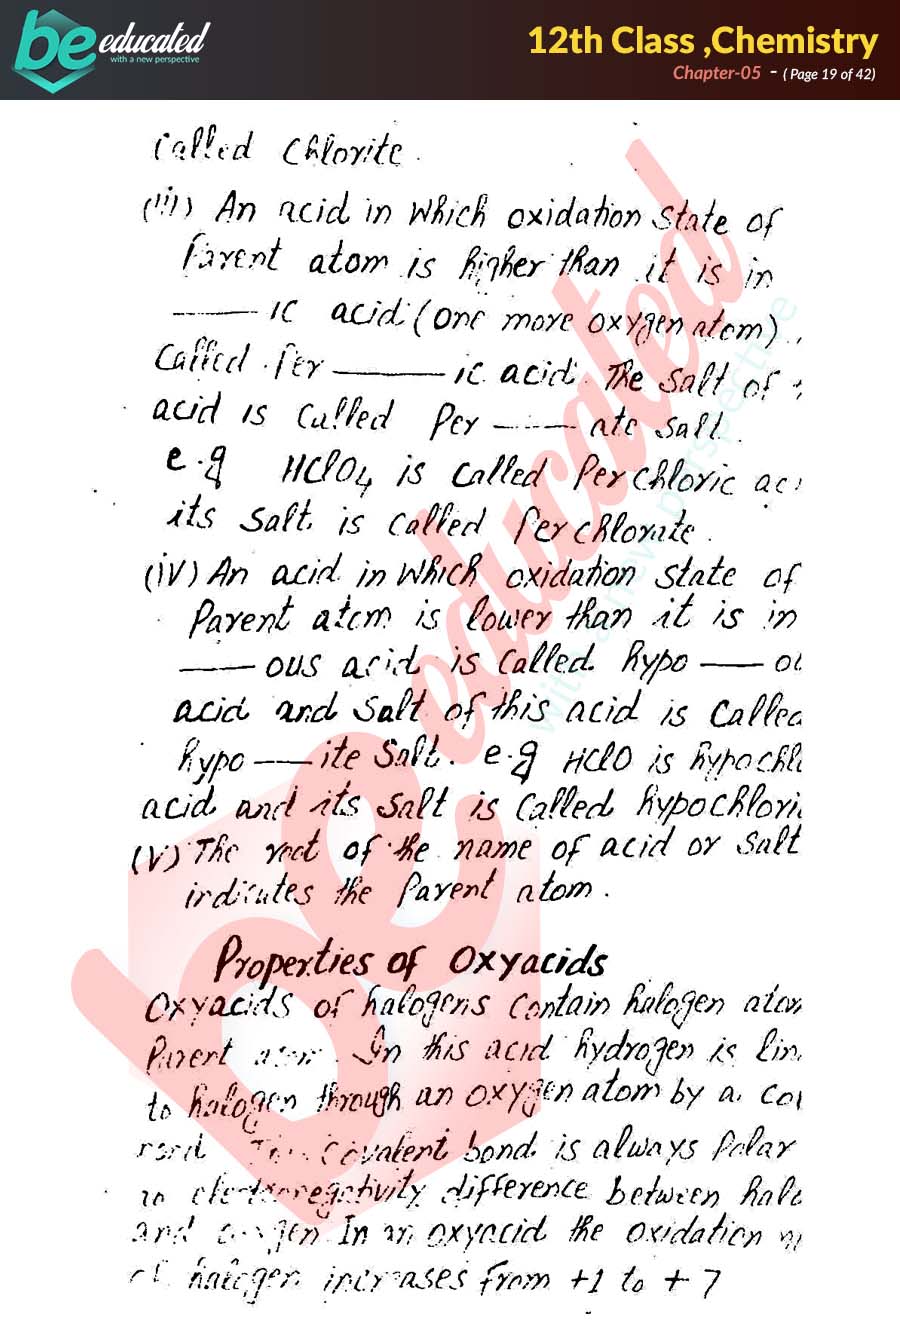 be educated
with a new perspective
12th Class ,Chemistry
Chapter-05 - ( Page 19 of 42)
Called Chlorite.
(iii) An acid in which oxidation state of
Parent atom is higher than it is in
——— ic acid (one more oxygen atom)
Called Per ——— ic acid. The Salt of
acid is Called Per ——— ate Salt.
e.g HClO4 is Called Perchloric
its Salt is Called Perchlorate.
(iv) An acid in which oxidation State of
Parent atom is lower than it is in
——— ous acid is Called hypo ——
acid and Salt of this acid is Called
hypo —— ite Salt. e.g HClO is hypochl
acid and its Salt is Called hypochlori
(v) The root of the name of acid or Salt
indicates the Parent atom.
Properties of Oxyacids
Oxyacids of halogens Contain halogen atom
Parent atom. In this acid hydrogen is lin
to halogen through an oxygen atom by a Cov
Covalent bond is always Polar
to electronegativity difference between halo
and oxygen In an oxyacid the oxidation
of halogen increases from +1 to +7
be educated
with a new perspective